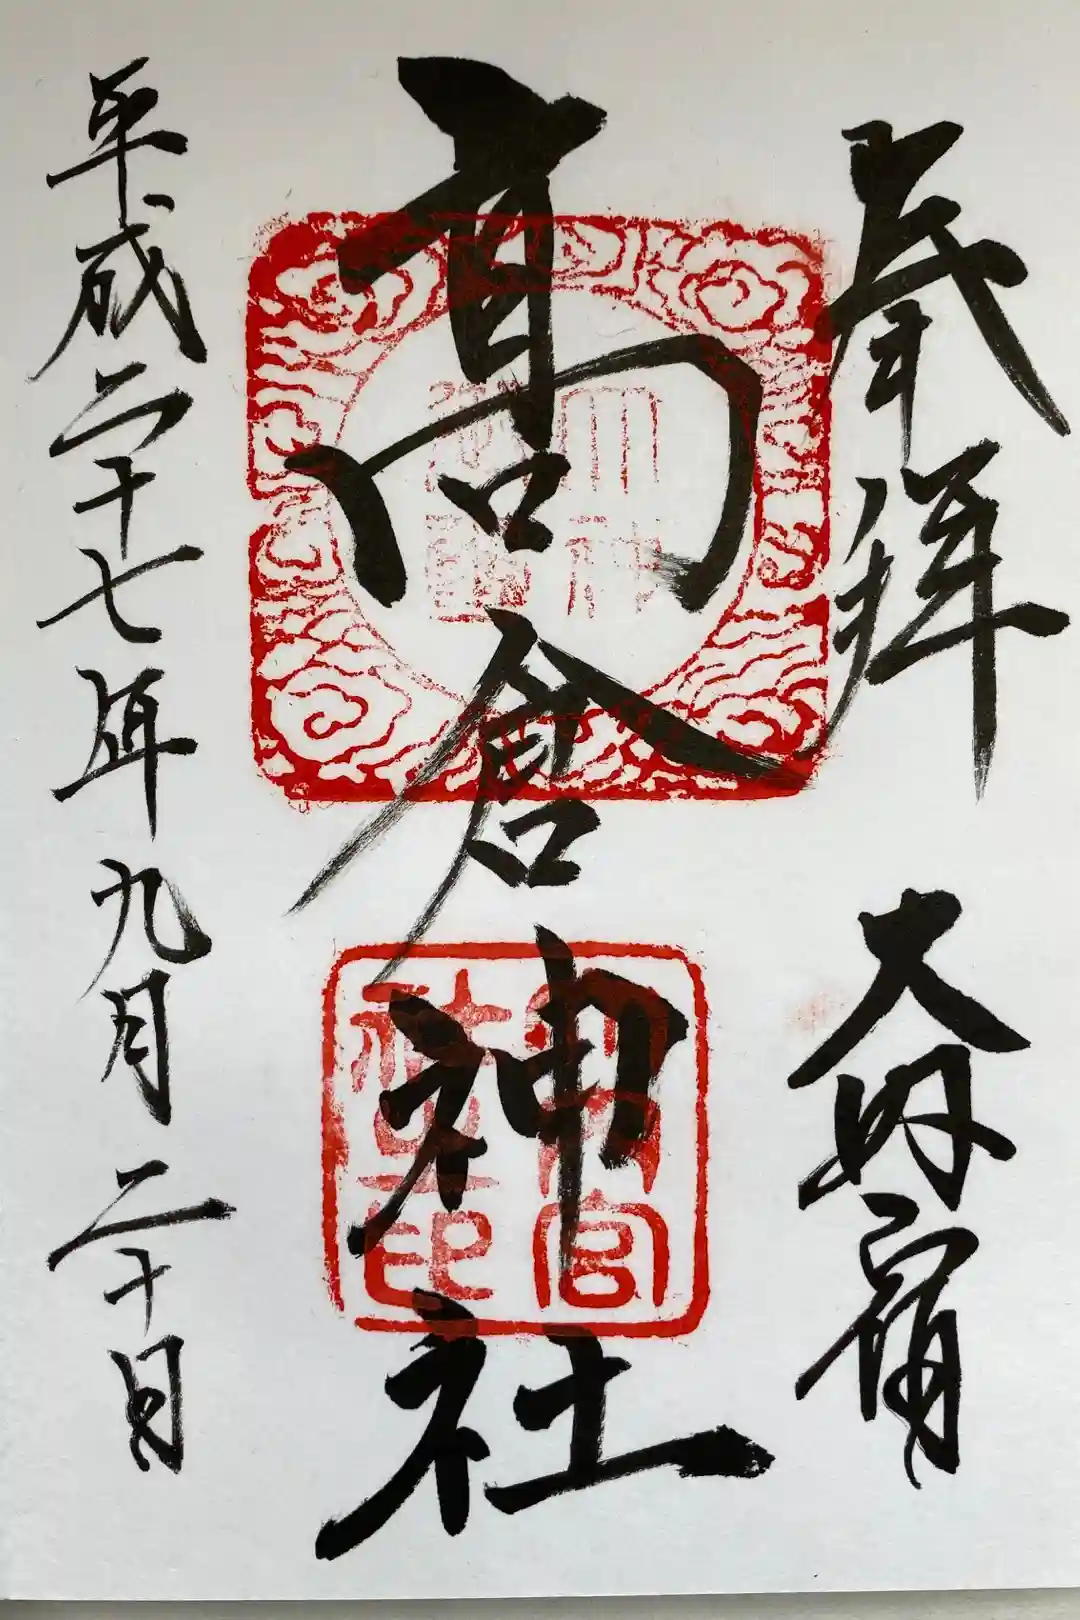 奉拝 大内宿
高倉神社
平成二十七年九月二十日